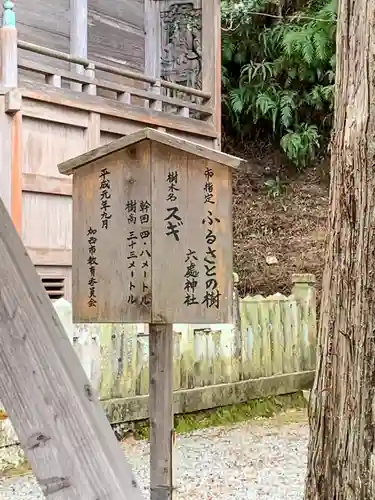 市指定
ふるさとの樹
六處神社
樹木名
スギ
幹回 四・八メートル
樹高 三十三メートル
平成元年九月
加西市教育委員会